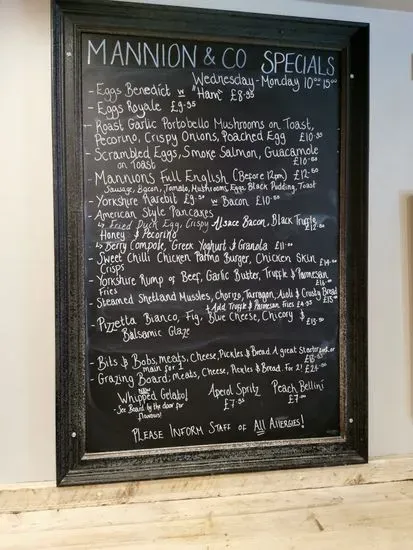 MANNION & CO SPECIALS
Wednesday - Monday 10:00 - 15:00
- Eggs Benedict w "Ham" £8.95
- Eggs Royale £9.95
- Roast Garlic Portobello Mushrooms on Toast,
Pecorino, Crispy Onions, Poached Egg £10.95
- Scrambled Eggs, Smoke Salmon, Guacamole
on Toast £10.50
- Mannions Full English (Before 12pm) £12.50
Sausage, Bacon, Tomato, Mushrooms, Eggs, Black Pudding, Toast
- Yorkshire Rarebit £9.50 w Bacon £10.50
- American Style Pancakes
↳ Fried Duck Egg, Crispy Alsace Bacon, Black Truffle
Honey & Pecorino £12.50
↳ Berry Compote, Greek Yoghurt & Granola £11.00
- Sweet Chilli Chicken Parmo Burger, Chicken Skin
Crisps
- Yorkshire Rump of Beef, Garlic Butter, Truffle & Parmesan
Fries
- Steamed Shetland Mussles, Chorizo, Tarragon, Aioli & Crusty Bread
↳ Add Truffle & Parmesan Fries £4.95 £15
- Pizzetta Bianco, Fig, Blue Cheese, Chicory &
Balsamic Glaze £13.50
- Bits & Bobs, meats, Cheese, Pickles & Bread. A great Starter and, or
main for 1
- Grazing Board: Meats, Cheese, Pickles & Bread. For 2!
NEW
Whipped Gelato! Aperol Spritz Peach Bellini
- See Board by the door for £7.95 £7.00
flavours!
PLEASE INFORM STAFF OF ALL ALLERGIES!